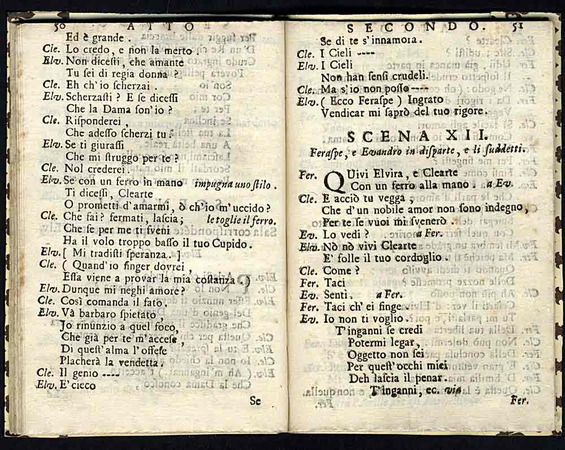 50 ATTO
Ed è grande.
Cle. Lo credo, e non la merto.
Elv. Non dicesti, che amante
Tu sei di regia donna?
Cle. Eh ch'io scherzai.
Elv. Scherzasti? E se dicessi
Che la Dama son'io?
Cle. Risponderei,
Che adesso scherzi tu.
Elv. Se ti giurassi
Che mi struggo per te?
Cle. Nol crederei.
Elv. Se con un ferro in mano impugna uno stilo.
Ti dicessi, Clearte,
O prometti d'amarmi, ò ch'io m'uccido?
Cle. Che fai? fermati, lascia; le toglie il ferro.
Che se per me ti sveni
Ha il volo troppo basso il tuo Cupido.
Elv. [Mi tradisti speranza.]
Cle. ( Quand'io finger dovrei,
Essa viene a provar la mia costanza)
Elv. Dunque mi neghi amore?
Cle. Così comanda il fato.
Elv. Và barbaro spietato,
Jo rinunzio a quel foco,
Che già per te m'accese,
Di quest'alma l'offese
Placherà la vendetta.
Cle. Il genio ----
Elv. E' cieco
Se
SECONDO. 51
Se di te s'innamora.
Cle. I Cieli ----
Elv. I Cieli
Non han sensi crudeli.
Cle. Ma s'io non posso ----
Elv. (Ecco Feraspe) Ingrato
Vendicar mi saprò del tuo rigore.
SCENA XII.
Feraspe, e Evandro in disparte, e li suddetti.
Fer. QUivi Elvira, e Clearte
Con un ferro alla mano. a Ev.
Cle. E acciò tu vegga,
Che d'un nobile amor non sono indegno,
Per te se vuoi mi svenerò.
Ev. Lo vedi? a Fer.
Elv. Nò nò vivi Clearte
E' folle il tuo cordoglio.
Cle. Come?
Fer. Taci
Ev. Senti. a Fer.
Fer. Taci ch'ei finge.
Ev. Io non ti voglio.
T'inganni se credi
Potermi legar,
Oggetto non sei
Per quest'occhi miei
Deh lascia il penar.
T'inganni, ec. via
Fer.